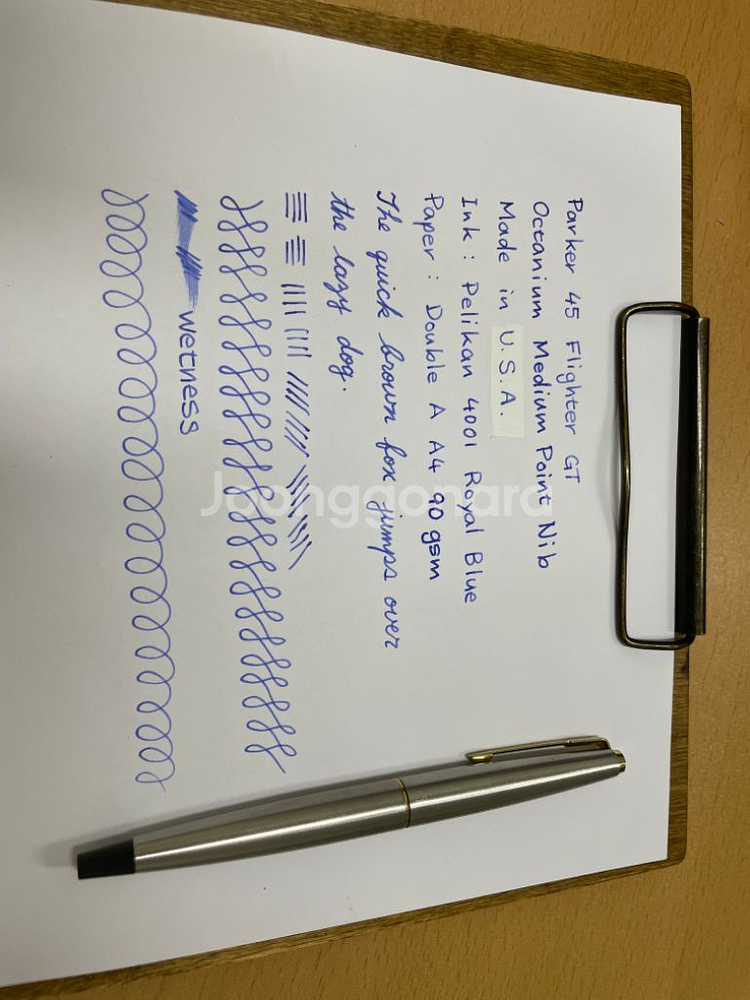 Parker 45 Flighter GT
Octanium Medium Point Nib
Made in U.S.A.
Ink : Pelikan 4001 Royal Blue
Paper : Double A A4 90 gsm
The quick brown fox jumps over
the lazy dog.
wetness
Joonggonara